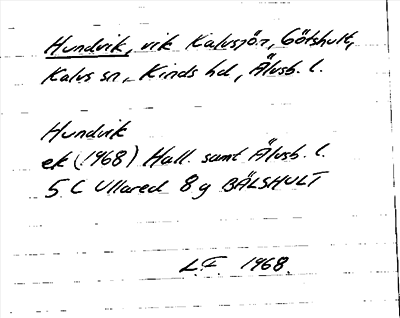 Hundvik, vik Kalvsjön, Götshult,
Kalvs sn, Kinds hd, Älvsb. l.
Hundvik
ek (1968) Hall. samt Älvsb. l.
5 C Ullared 8 g BÄLSHULT
L.F. 1968.